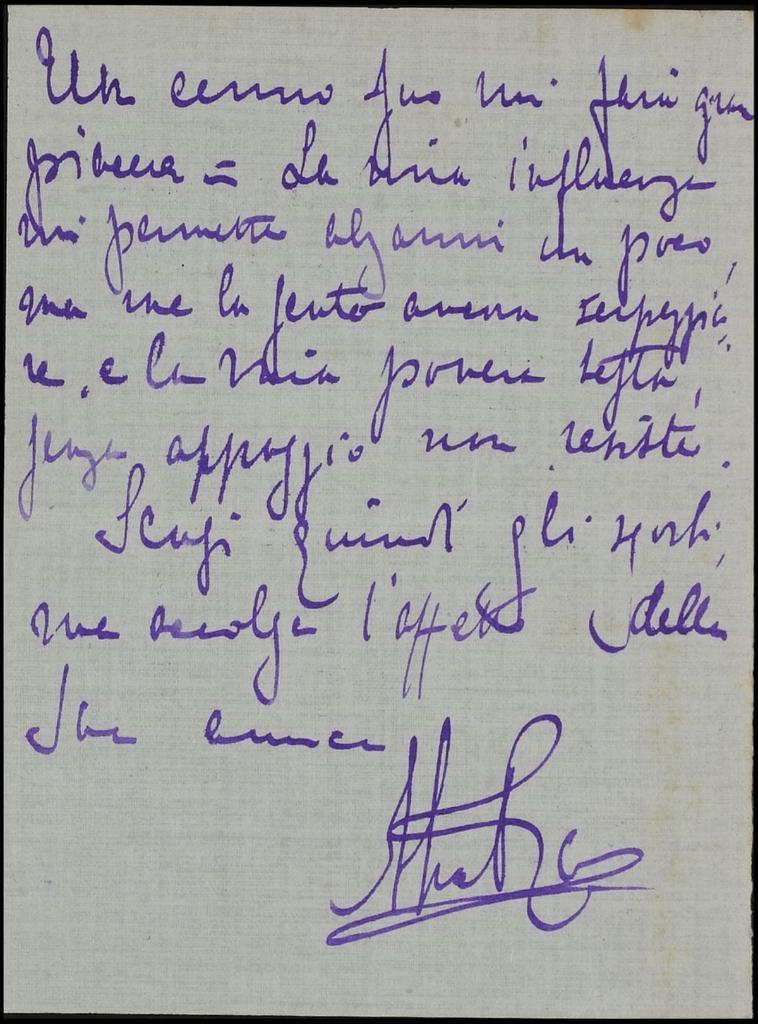 Un cenno Suo mi farà gran
piacere = La mia influenza
mi permette alzarmi un poco,
ma me la sento ancora serpeggia
re, e la mia povera testa,
senza appoggio non resiste.
Scusi quindi gli sgorbi,
ma accolga l'affetto della
Sua amica